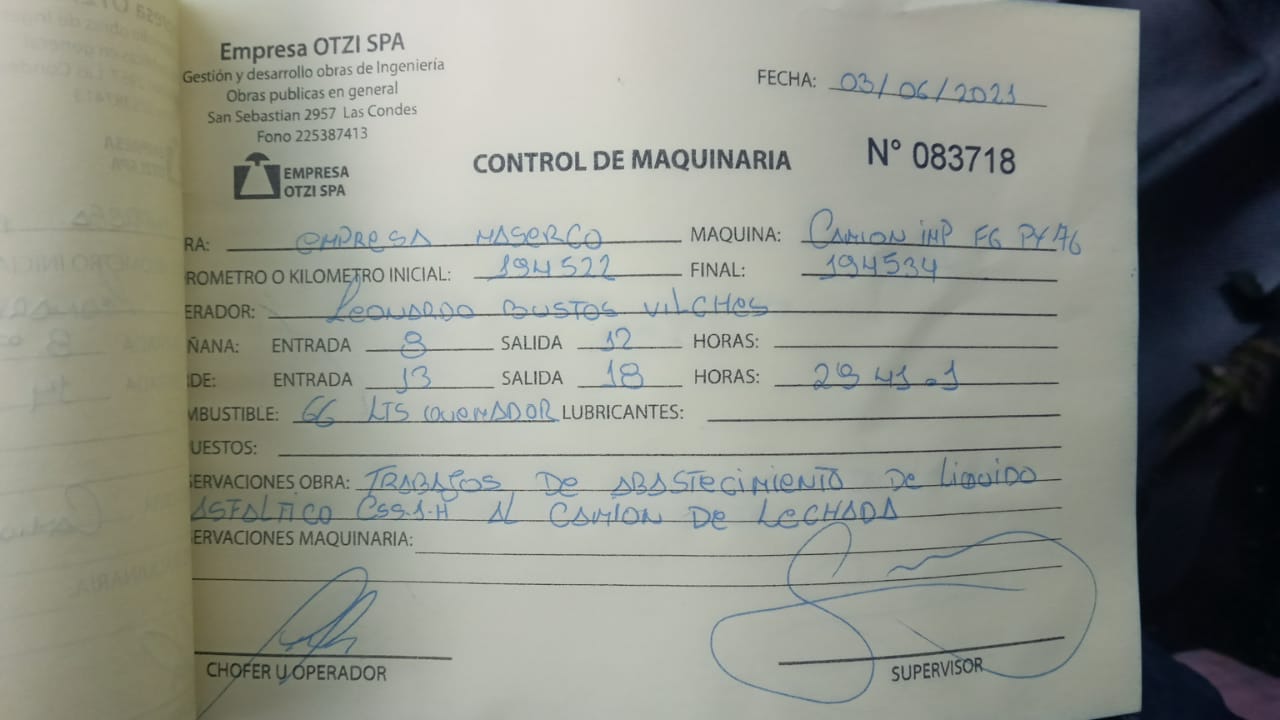 Empresa OTZI SPA
Gestión y desarrollo obras de Ingeniería
Obras publicas en general
San Sebastian 2957 Las Condes
Fono 225387413
EMPRESA
OTZI SPA
FECHA: 03/06/2021
CONTROL DE MAQUINARIA N° 083718
RA: EMPRESA MASERCO MAQUINA: CAMION IMP FG PY76
ROMETRO O KILOMETRO INICIAL: 194522 FINAL: 194534
ERADOR: LEONARDO BUSTOS VILCHES
ÑANA: ENTRADA 8 SALIDA 12 HORAS:
DE: ENTRADA 13 SALIDA 18 HORAS: 2941.1
MBUSTIBLE: 66 LTS QUEMADOR LUBRICANTES:
UESTOS:
SERVACIONES OBRA: TRABAJOS DE ABASTECIMIENTO DE LIQUIDO
ASFALTICO CSS.1-H AL CAMION DE LECHADA
SERVACIONES MAQUINARIA:
CHOFER U OPERADOR SUPERVISOR